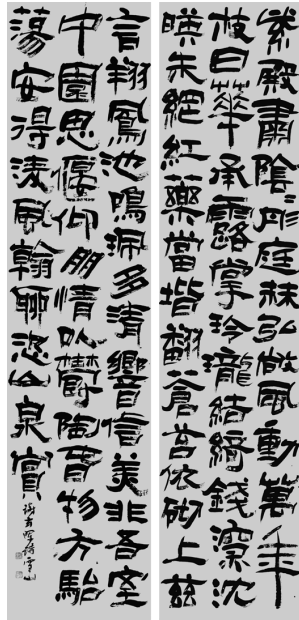 紫殿肅陰〻彤庭赫弘敞風動萬年
枝日華承露掌玲瓏結綺錢深沈
暎朱網紅藥當堦翻蒼苔依砌上茲
言翔鳳池鳴珮多清響信美非吾室
中園思偃仰朋情以鬱陶春物方駘
蕩安得淩風翰聊恣山泉賞
謝玄暉詩